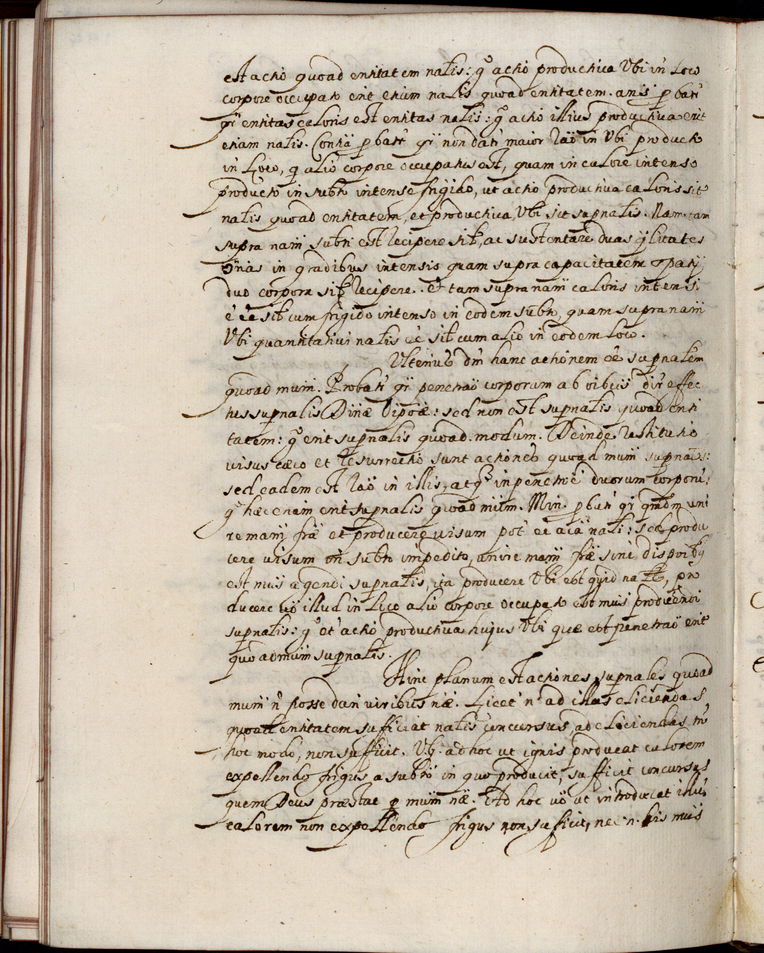 est actio quoad entitatem nalis: g° actio productiva Ubi in loco
corpore occupato erit etiam nalis quoad entitatem. ans pbatr
qr entitas caloris est entitas nalis: g° actio illius productiva erit
etiam nalis. Contra pbatr qr non datr maior rao in Ubi producto
in loco, q alio corpore occupatus est, quam in calore intenso
producto in subto intense frigido, ut actio productiva caloris sit
nalis quoad entitatem, et productiva Ubi sit supnalis. Nam tam
supra nam subti est recipere sil, ac sustentare duas qlitates
in gradibus intensis quam supra capacitatem spatij
duo corpora sil recipere. Et tam supra nam caloris intensi
e ee sil cum frigido intenso in eodem subto, quam supra nam
Ubi quantitativi nalis ee sil cum alio in eodem loco.
Ulterius dm hanc actionem ee supnalem
quoad mum. Probatr qr penetrao corporum ab oibus dir effec
tus supnalis Divinae : sed non est supnalis quoad enti
tatem: g° erit supnalis quoad modum. Deinde restitutio
visus caeco et resurrectio sunt actiones quoad mum supnales:
sed eadem est rao in illis, atq in penetrone duorum corporu:
g° haec etiam erit supnalis quoad mum. Min. pbatr qr uni
re mam frae et producere visum pot ee nalis: sed produ
cere visum in subto impedito, unire mam frae sine disponbus
est mus agendi supnalis, ita producere Ubi est quid nale, pro
ducere vo illud in loco alio corpore occupato est mus producendi
supnalis: g° et actio productiva hujus Ubi quae est penetrao erit
quoad mum supnalis.
Hinc planum est actiones supnales quoad
mum n posse dari viribus nae. Licet n ad illas eliciendas
quoad entitatem sufficiat nalis concursus, ad eliciendas tn
hoc modo, non sufficit. V.g. ad hoc ut ignis producat calorem
expellendo frigus a subto in quo producit, sufficit concursus
quem Deus praestat p mum nae. Ad hoc vo ut introducat illu
calorem non expellendo frigus non sufficit, nec n. his muis